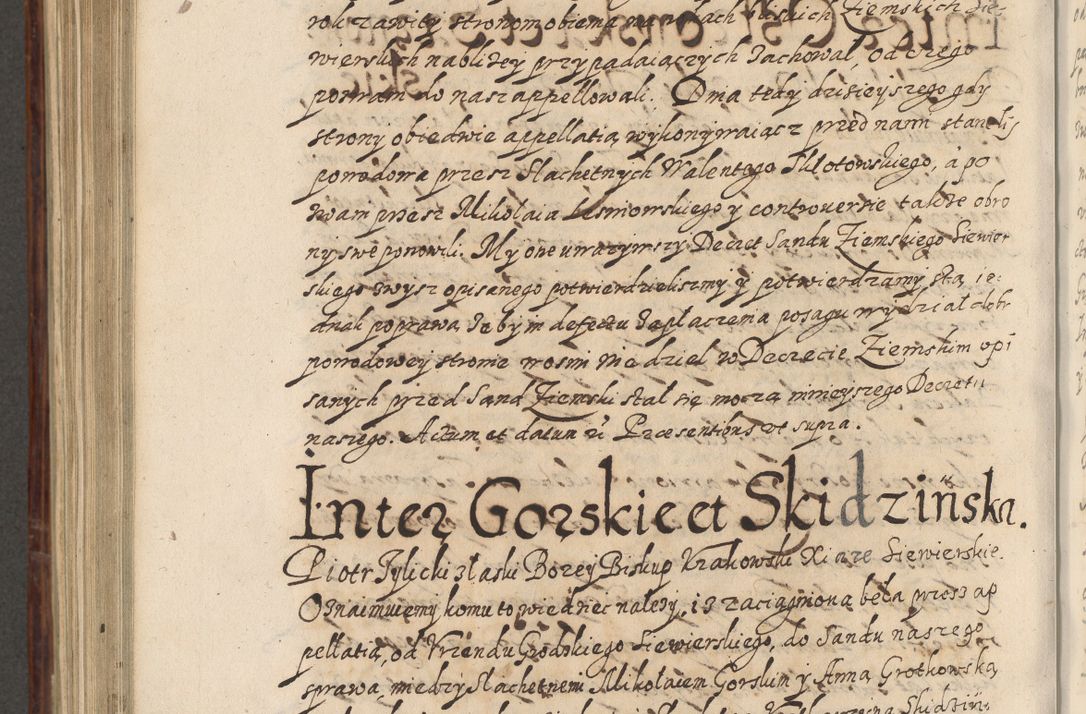 rok zawity stronom obiema na rokach bliskich Ziemskich Sie-
wierskich nabliżey przypadaiących zachował, od czego
postram do nasz appellowali. Dnia tedy dzisieyszego gdy
strony obiedwie appellatią wykonywaiącz przed nami stanęły
powodowa przesz Slachetnych Walentego Tklotowskiego, á po
zwam przesz Mikołaia Lesniowskiego y controuersie także obro
ny swe ponowili. My one uwazywszy Decret Sandu Ziemskiego Siewier
skiego zwysz opisanego potwierdzielismy y potwierdzamy stą ie-
dnak poprawą
powodowey stronie wosmi niedziel w Decrecie Ziemskim opi
sanych przed Sand Ziemski stał się moczą ninieyszego Decretu
naszego. Actum et datum ut Præsentibus ut supra.
Inter Gorskie et Skidzińska.
Piotr Tylicki z łaski Bozey Biskup Krakowski Xiąze Siewierskie.
Oznaimuiemy komu to wiedziec nalezy, iz zaciągniona beła przesz ap
pellatią, od Vrzendu Grodskiego Siewierskiego, do Sandu naszego
sprawa, miedzy Slachetnemi Mikołaiem Gorskim y Anną Grotkowską
Skidzin